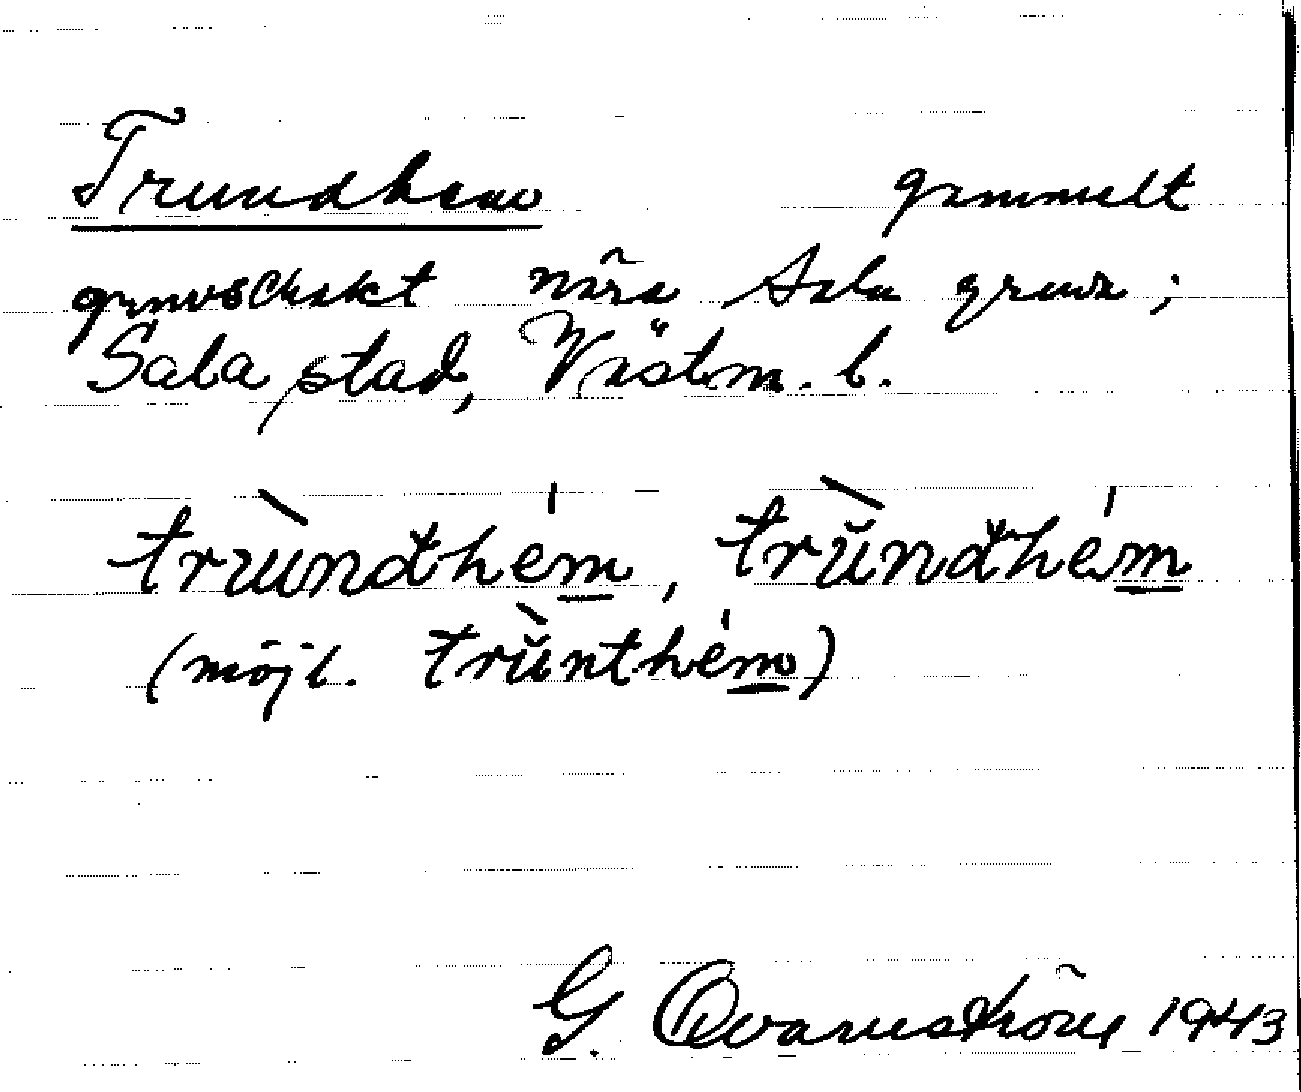 Trundhem gammalt
gruvschakt nära Sala gruva;
Sala stad, Västm. l.
trùndhém, trŭ̀ndhém
(möjl. trŭ̀nthém)
G. Qvarnström 1943